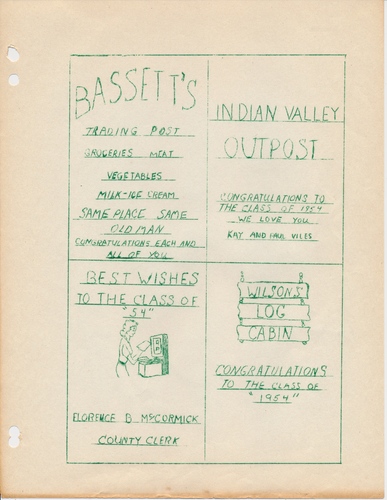 BASSETT'S
TRADING POST
GROCERIES MEAT
VEGETABLES
MILK-ICE CREAM
SAME PLACE SAME
OLD MAN
CONGRATULATIONS EACH AND
ALL OF YOU
INDIAN VALLEY
OUTPOST
CONGRATULATIONS TO
THE CLASS OF 1954
WE LOVE YOU
KAY AND PAUL VILES
BEST WISHES
TO THE CLASS OF
"54"
FLORENCE B McCORMICK
COUNTY CLERK
WILSONS
LOG
CABIN
CONGRATULATIONS
TO THE CLASS OF
"1954"